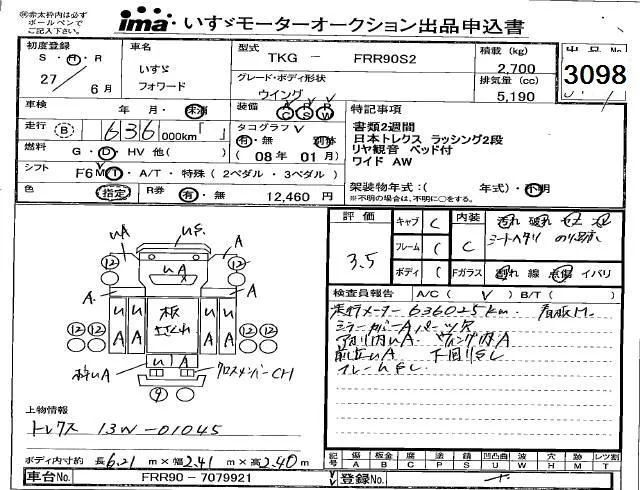 ㊟赤太枠内は必ず
ボールペンで
ご記入下さい。
ima いすゞモーターオークション出品申込書
初度登録
S・H・R
27 6月
車名
いすゞ
フォワード
型式
TKG - FRR90S2
グレード・ボディ形状
ウイング
積載 (kg)
2,700
排気量 (cc)
5,190
出品No.
3098
車検 年 月・未満
走行 B 636 000km「 」
燃料 G・D・HV 他( )
シフト F6 M T・A/T・特殊(2ペダル・3ペダル)
色 指定 R券 有・無 12,460 円
装備 A/C P/S P/W
タコグラフ
有・無 別体
(08年 01月)
特記事項
書類2週間
日本トレクス ラッシング2段
リヤ観音 ベッド付
ワイド AW
架装物年式:( 年式)・不明
※不明の場合は、不明に○をする。
評価 3.5
キャブ C
フレーム C
ボディ C
内装 C
Fガラス
汚れ 破れ
シートヘタリ のり跡
割れ 線 点傷 イバリ
検査員報告 A/C( V ) B/T( )
走行メーター 636025km 看板M.
ミラーカバーAパーツ欠
下回りSL
フレームSL
uA uS. A
12 12
uA
A. A
u A u A
板
u A u A
12 12
uA
クロスメンバーCH
9
上物情報
トレクス 13W-01045
ボディ内寸約 長6.21m×幅2.41m×高2.40m
記号 傷 A 板金 B 腐 C 塗 P 錆 S 凹凸曲 U 波 W 穴 H 跡 M レツ割 T
車台No. FRR90-7079921
登録No.